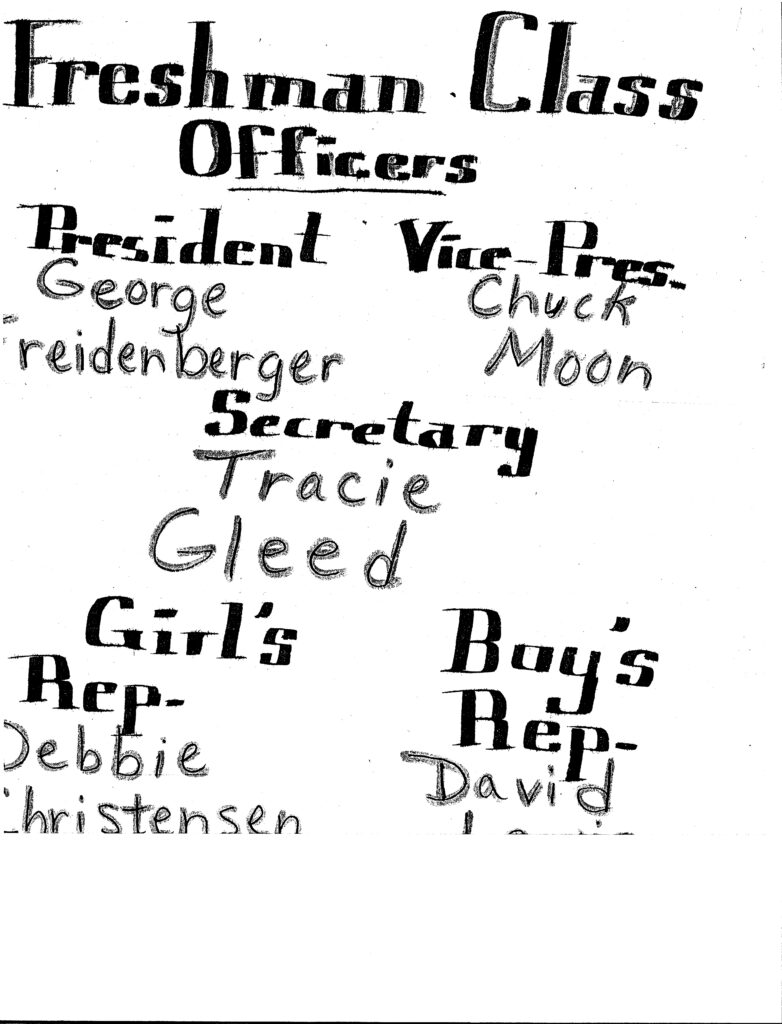 Freshman Class
Officers
President Vice-Pres.
George Chuck
reidenberger Moon
Secretary
Tracie
Gleed
Girl's Boy's
Rep- Rep-
Debbie David
hristensen